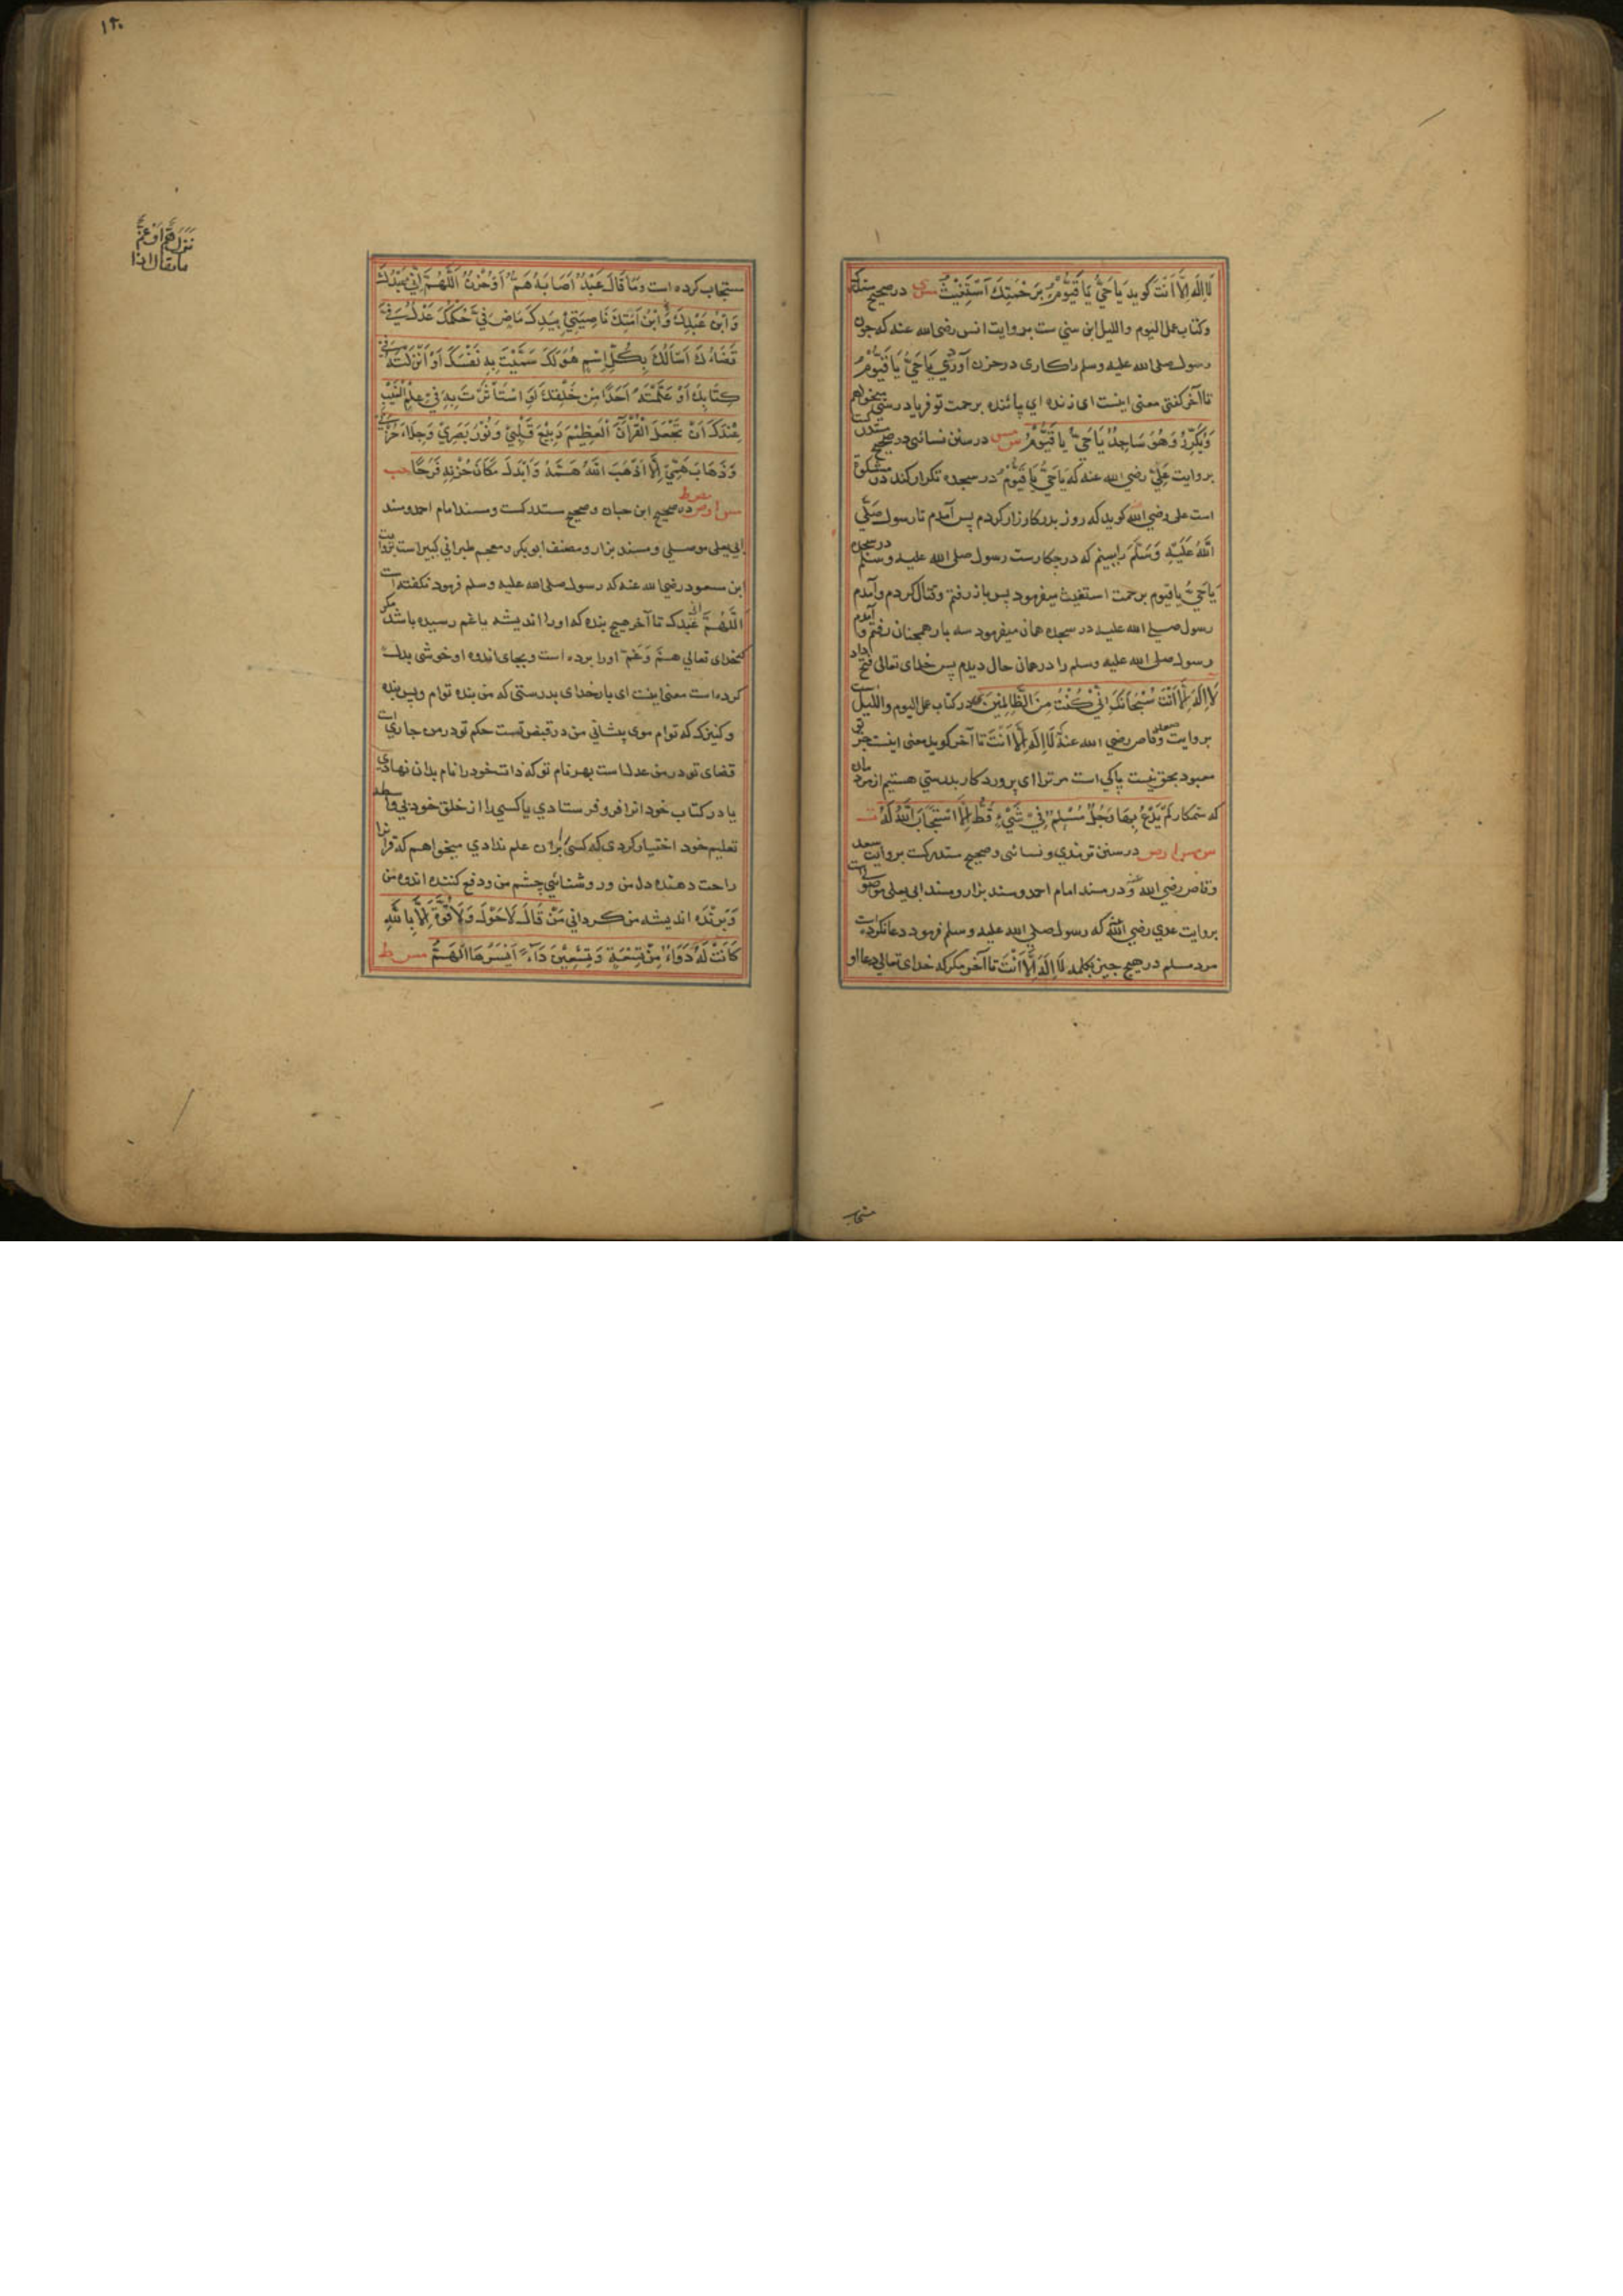 لَا اِلٰهَ اِلَّا اَنْتَ کوید یَا حَیُّ یَا قَیُّوْمُ بِرَحْمَتِكَ اَسْتَغِیْثُ مس ی در صحیح مستدرک
وکتاب عمل الیوم واللیل ابن سنی ست بروایت انس رضی الله عنه که چون
رسول صلی الله علیه وسلم را کاری در حزن آوردی یَا حَیُّ یَا قَیُّوْمُ
تا آخر کفتی معنی اینست ای زنده ای پائنده برحمت تو فریاد رسی میخواهم
وَیُکَرِّرُ وَهُوَ سَاجِدٌ یَا حَیُّ یَا قَیُّوْمُ س مس در سنن نسائی و در صحیح مستدرکست
بروایت عَلِیّ رضی الله عنه که یَا حَیُّ یَا قَیُّوْمُ در سجده تکرار کند در مشکوة
است علی رضی الله کوید که روز بدر کارزار کردم پس آمدم تا رسول صَلَّی
اللهُ عَلَیْهِ وَسَلَّمَ را ببینم که در چکارست رسول صلی الله علیه وسلم در سجده
یَا حَیُّ یا قیوم برحمت استغیث میفرمود پس باز رفتم وقتال کردم وآمدم
رسول صلی الله علیه در سجده همان میفرمود سه بار همچنان رفتم وآمدم
رسول صلی الله علیه وسلم را در همان حال دیدم پس خدای تعالی فتح داد
لَا اِلٰهَ اِلَّا اَنْتَ سُبْحَانَكَ اِنِّیْ کُنْتُ مِنَ الظَّالِمِیْنَ در کتاب عمل الیوم واللیل است
بروایت سعد وقاص رضی الله عنه لَا اِلٰهَ اِلَّا اَنْتَ تا آخر کوید معنی اینست جز تو
معبود بحق نیست پاکی است مر ترا ای پروردکار بدرستی هستم از مردمان
که ستمکار لَمْ یَدْعُ بِهَا رَجُلٌ مُسْلِمٌ فِیْ شَیْءٍ قَطُّ اِلَّا اسْتَجَابَ اللهُ لَهُ ت
س مس ا ر ص در سنن ترمذی ونسائی وصحیح مستدرکست بروایت سعد
وقاص رضی الله عنه ودر مسند امام احمد ومسند بزار ومسند ابی یعلی موصلی است
بروایت عدی رضی الله عنه که رسول صلی الله علیه وسلم فرمود دعا نکرده است
مرد مسلم در هیچ چیز بکلمه لَا اِلٰهَ اِلَّا اَنْتَ تا آخر مکر که خدای تعالی دعا او
مستجاب
۱۲۰
مستجاب کرده است وَمَا قَالَ عَبْدٌ اَصَابَهُ هَمٌّ اَوْ حُزْنٌ اَللّٰهُمَّ اِنِّیْ عَبْدُكَ
وَابْنُ عَبْدِكَ وَابْنُ اَمَتِكَ نَاصِیَتِیْ بِیَدِكَ مَاضٍ فِیَّ حُکْمُكَ عَدْلٌ فِیَّ
قَضَاءُكَ اَسْاَلُكَ بِکُلِّ اِسْمٍ هُوَ لَكَ سَمَّیْتَ بِهِ نَفْسَكَ اَوْ اَنْزَلْتَهُ فِی
کِتَابِكَ اَوْ عَلَّمْتَهُ اَحَدًا مِنْ خَلْقِكَ اَوِ اسْتَأْثَرْتَ بِهِ فِیْ عِلْمِ الْغَیْبِ
عِنْدَكَ اَنْ تَجْعَلَ الْقُرْآنَ الْعَظِیْمَ رَبِیْعَ قَلْبِیْ وَنُوْرَ بَصَرِیْ وَجِلَاءَ حُزْنِیْ
وَذَهَابَ هَمِّیْ اِلَّا اَذْهَبَ اللهُ هَمَّهُ وَاَبْدَلَ مَکَانَ حُزْنِهِ فَرَحًا حب
مس ا ر ص مص ط در صحیح ابن حبان وصحیح مستدرکست ومسند امام احمد ومسند
ابی یعلی موصلی ومسند بزار ومصنف ابوبکر ومعجم طبرانی کبیر است بروایت
ابن مسعود رضی الله عنه که رسول صلی الله علیه وسلم فرمود نکفته است
اَللّٰهُمَّ انی عَبْدك تا آخر هیچ بنده که او را اندیشه یا غم رسیده باشد مکر
که خدای تعالی هَمّ وَغَمّ او را برده است وبجای اندوه او خوشی بدل
کرده است معنی اینست ای بار خدای بدرستی که من بنده توام وپسر بنده
وکنیزک که توام موی پیشانی من در قبض تست حکم تو در من جاری است
قضای تو در من عدلست بهر نام تو که ذات خود را نام بدان نهادی
یا در کتاب خود انرا فرو فرستادی یا کسی را از خلق خود بی واسطه
تعلیم خود اختیار کردی که کسی را بران علم ندادی میخواهم که قرآن را
راحت دهنده دل من وروشنائی چشم من ودفع کننده اندوه من
وَبرنده اندیشه من کردانی مَنْ قَالَ لَا حَوْلَ وَلَا قُوَّةَ اِلَّا بِاللهِ
کَانَتْ لَهُ دَوَاءً مِنْ تِسْعَةٍ وَتِسْعِیْنَ دَاءً اَیْسَرُهَا الْهَمُّ مس ط